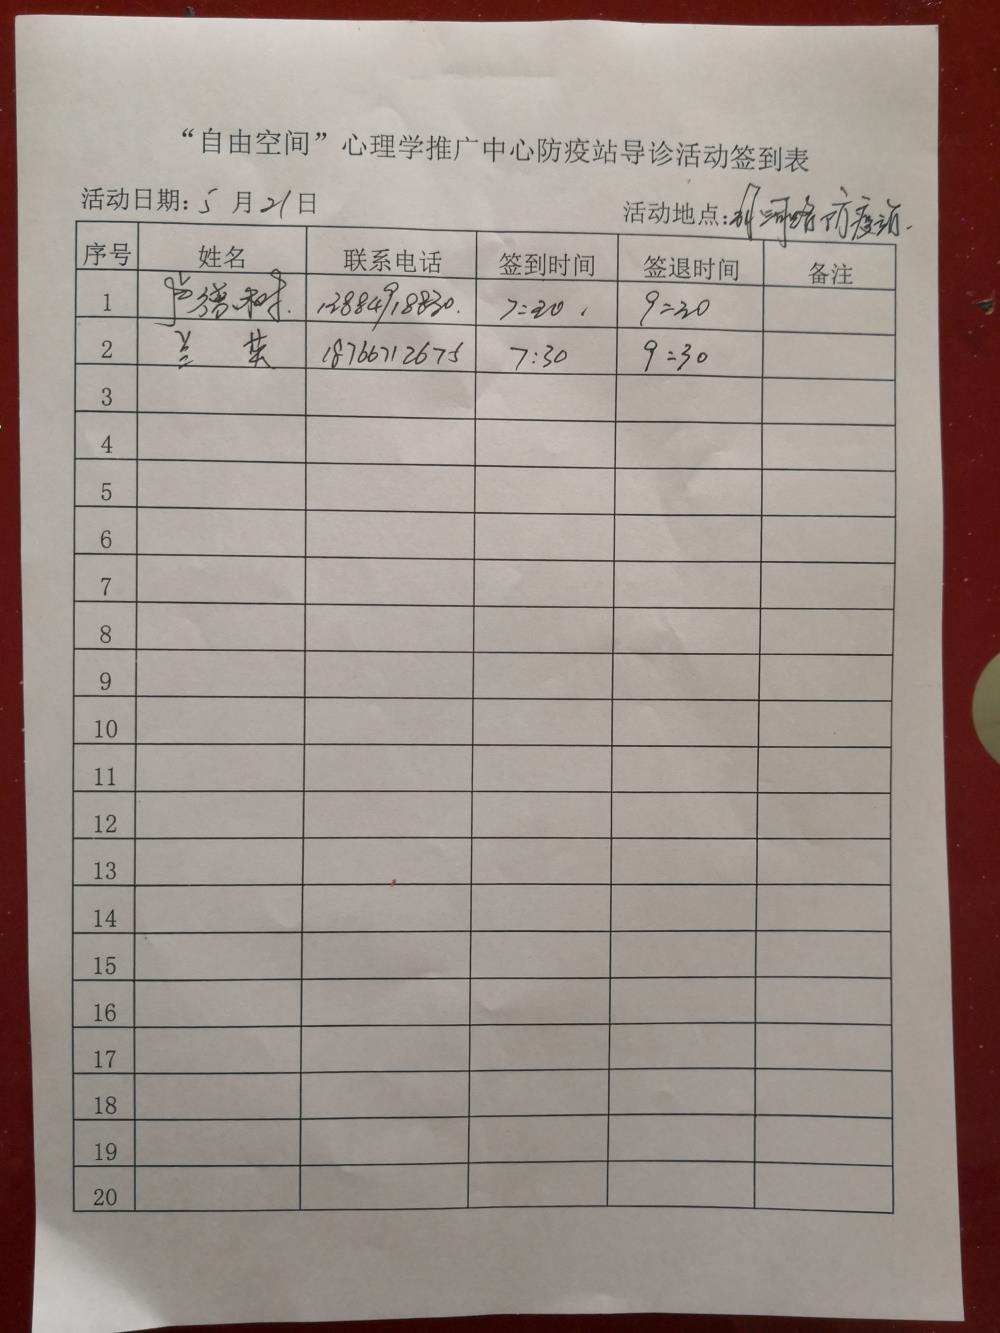 “自由空间”心理学推广中心防疫站导诊活动签到表
活动日期: 5 月 21 日 活动地点: 防疫站.
序号 姓名 联系电话 签到时间 签退时间 备注
1 7:20 9:20
2 兰英 18766712675 7:30 9:30
3
4
5
6
7
8
9
10
11
12
13
14
15
16
17
18
19
20